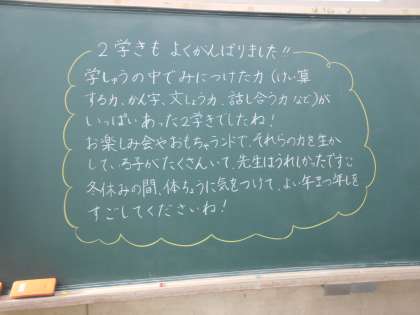 2学きも よくがんばりました!!
学しゅうの中でみにつけた力(けい算
する力、かん字、文しょう力、話し合う力 など)が
いっぱいあった2学きでしたね!
お楽しみ会やおもちゃランドで、それらの力を生か
している子がたくさんいて、先生はうれしかったです。
冬休みの間、体ちょうに気をつけて、よい年まつ年しを
すごしてくださいね!